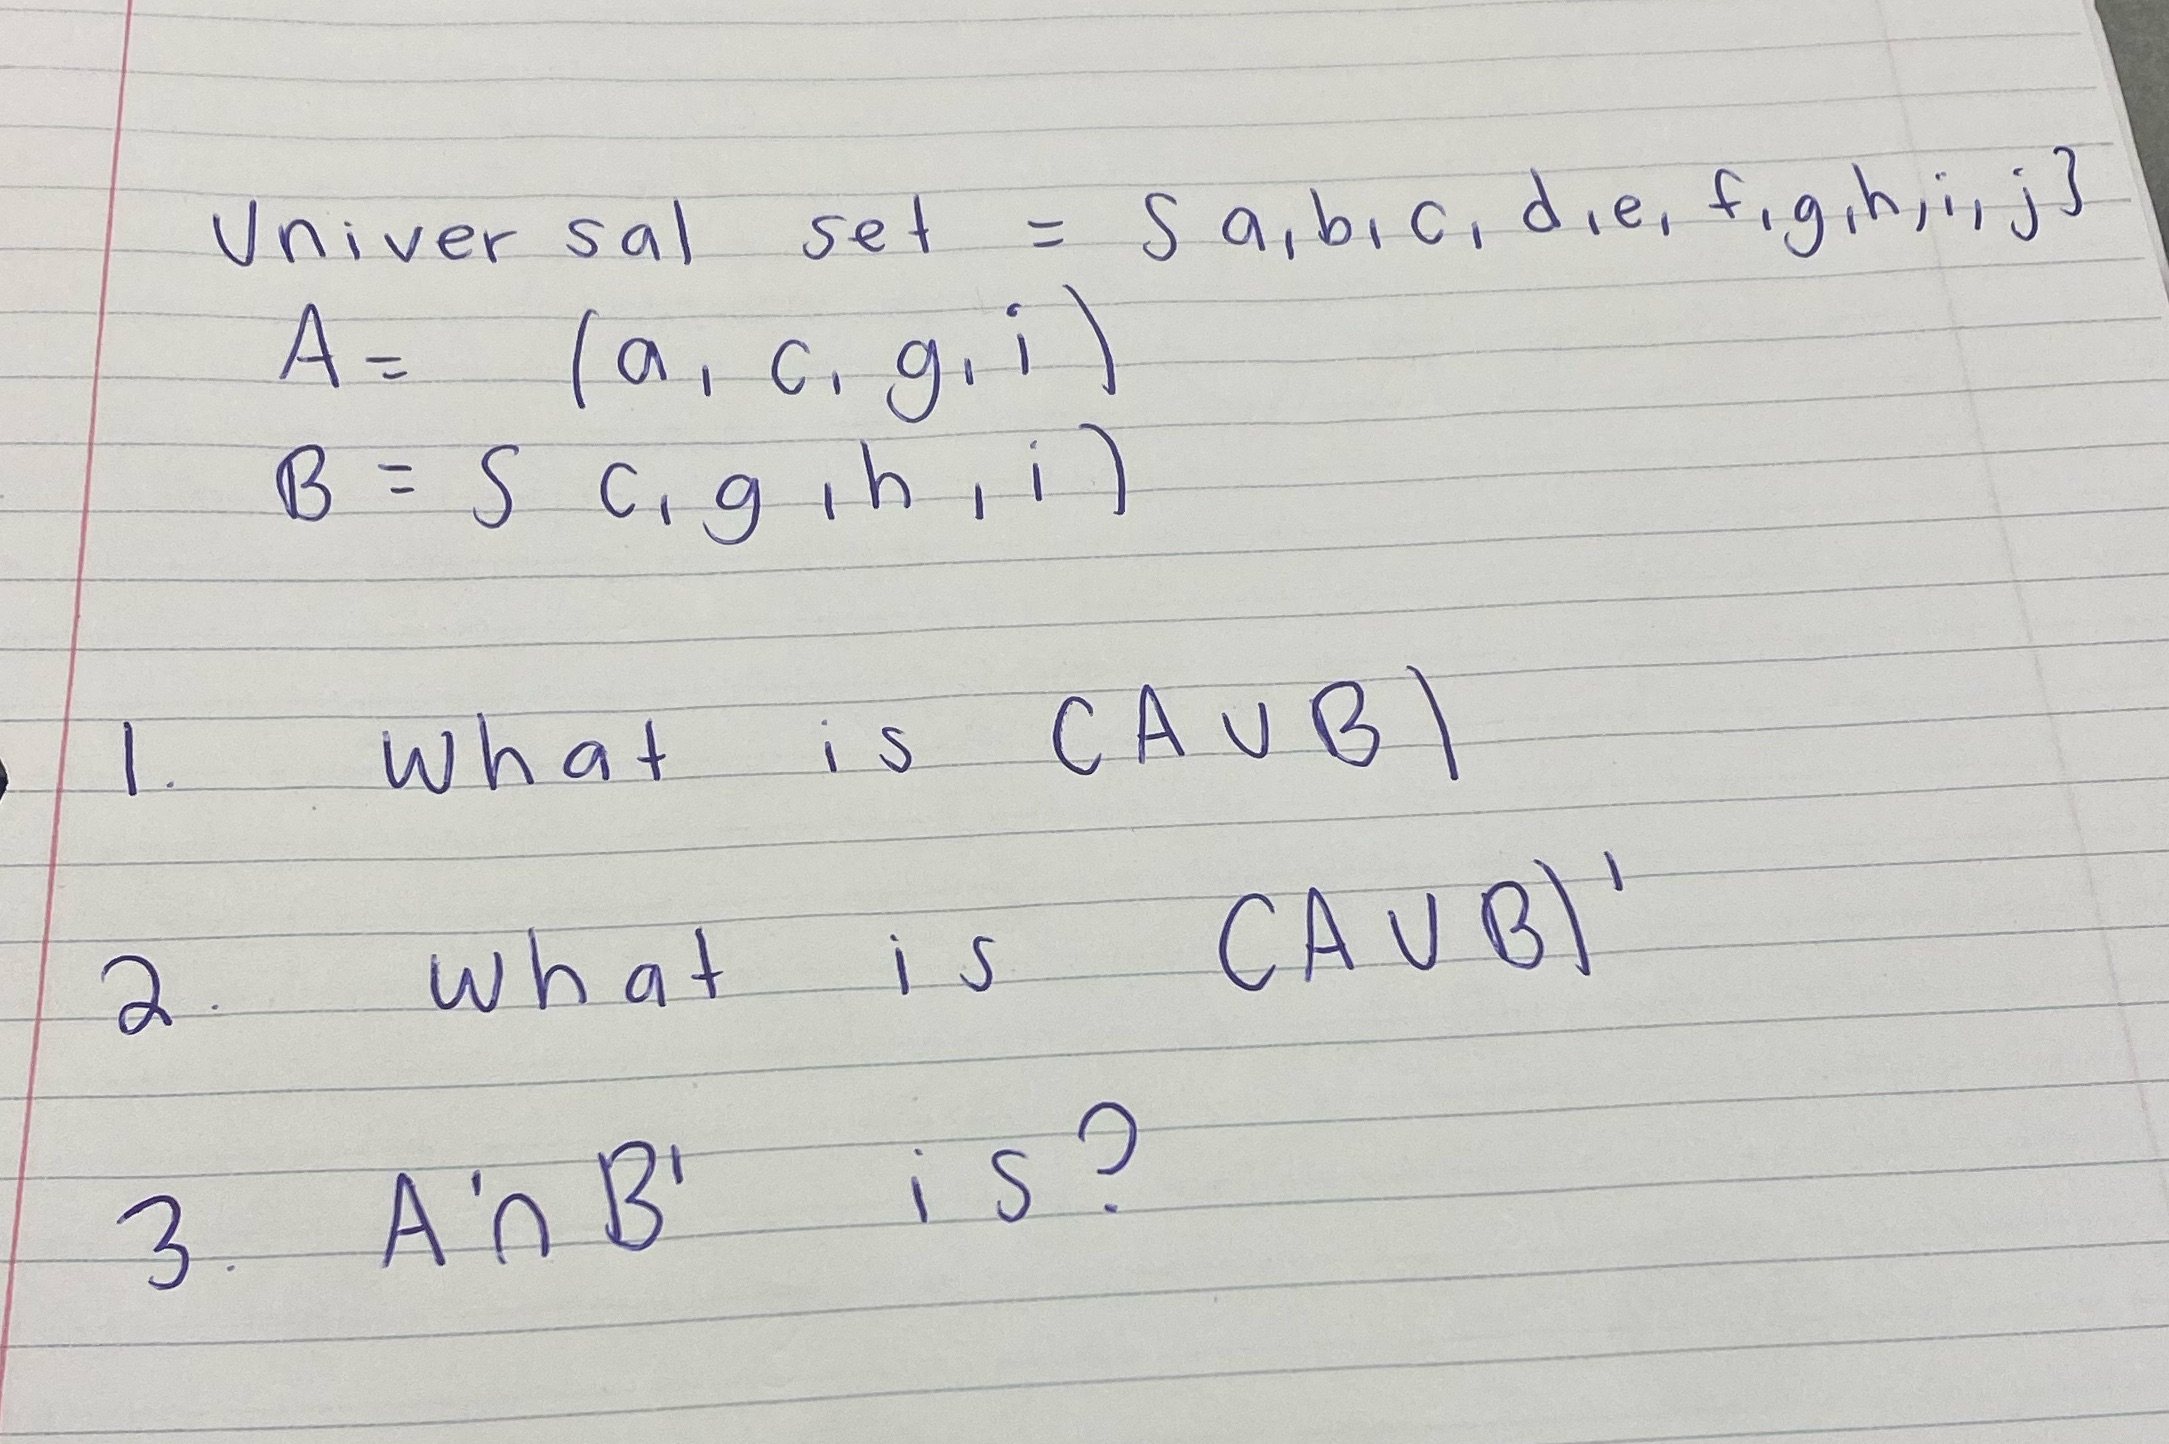 Universal set = { a, b, c, d, e, f, g, h, i, j }
A = (a, c, g, i)
B = { c, g, h, i )
1. What is (A ∪ B)
2. What is (A ∪ B)'
3. A' ∩ B' is?